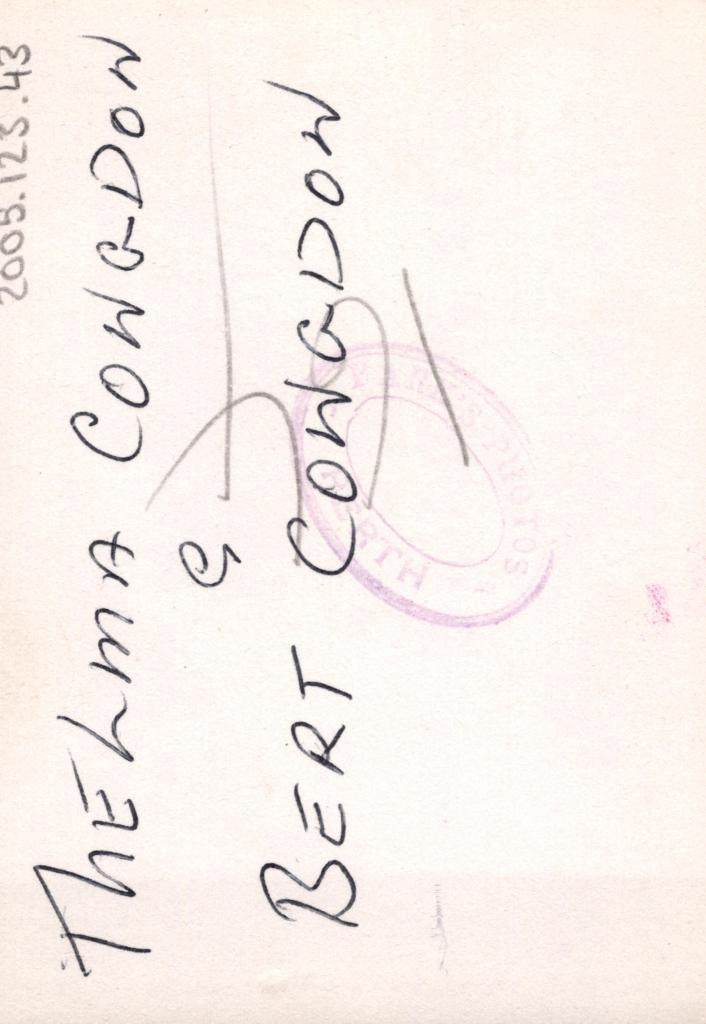 2005.123.43
THELMA CONGDON
&
BERT CONGDON
PARK'S PHOTOS
PERTH